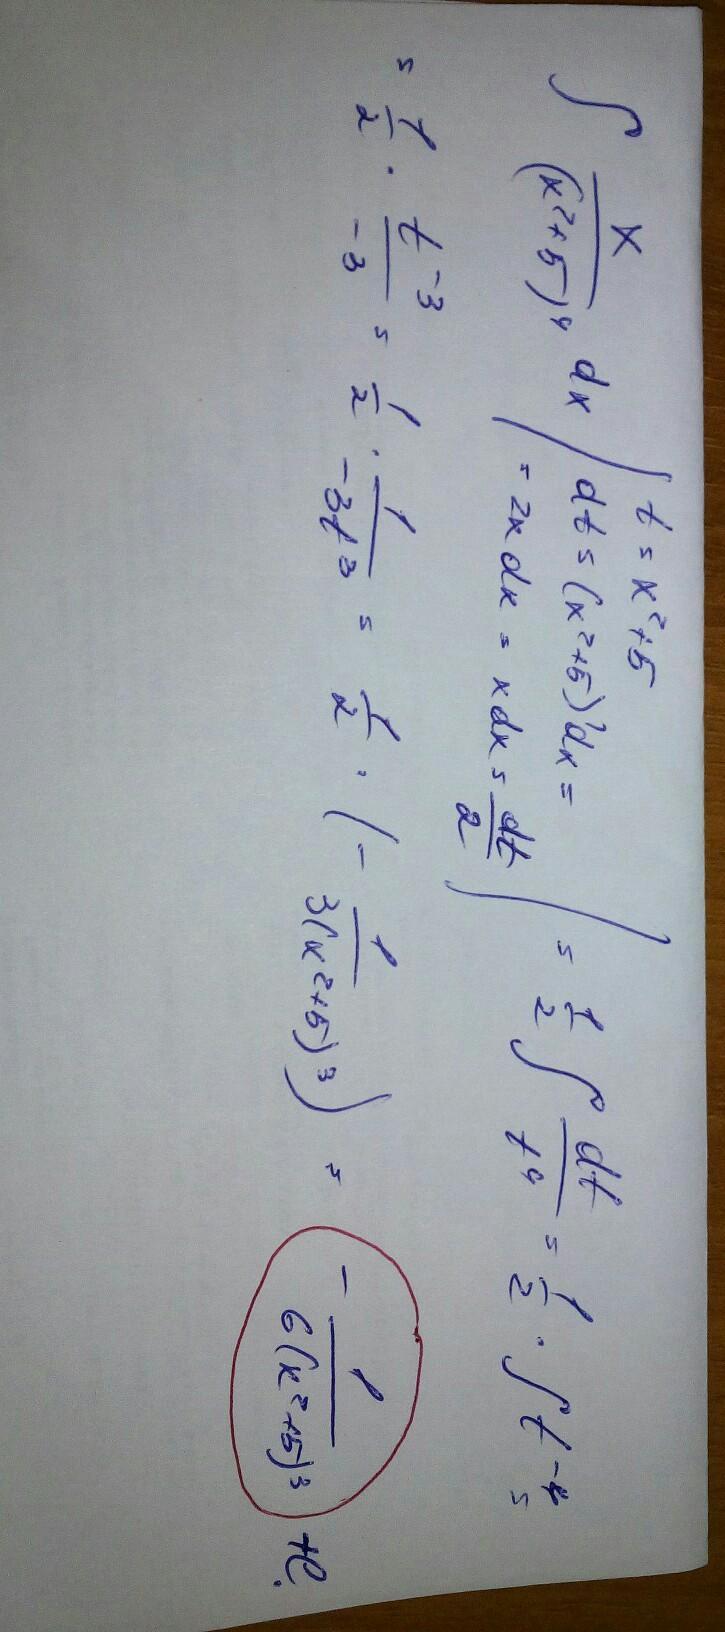 ∫ x/(x²+5)⁴ dx | t = x²+5
dt = (x²+5)'dx =
= 2x dx = x dx = dt/2 | = 1/2 ∫ dt/t⁴ = 1/2 · ∫ t⁻⁴ =
= 1/2 · t⁻³/-3 = 1/2 · 1/-3t³ = 1/2 · (- 1/3(x²+5)³) = - 1/6(x²+5)³ +C.